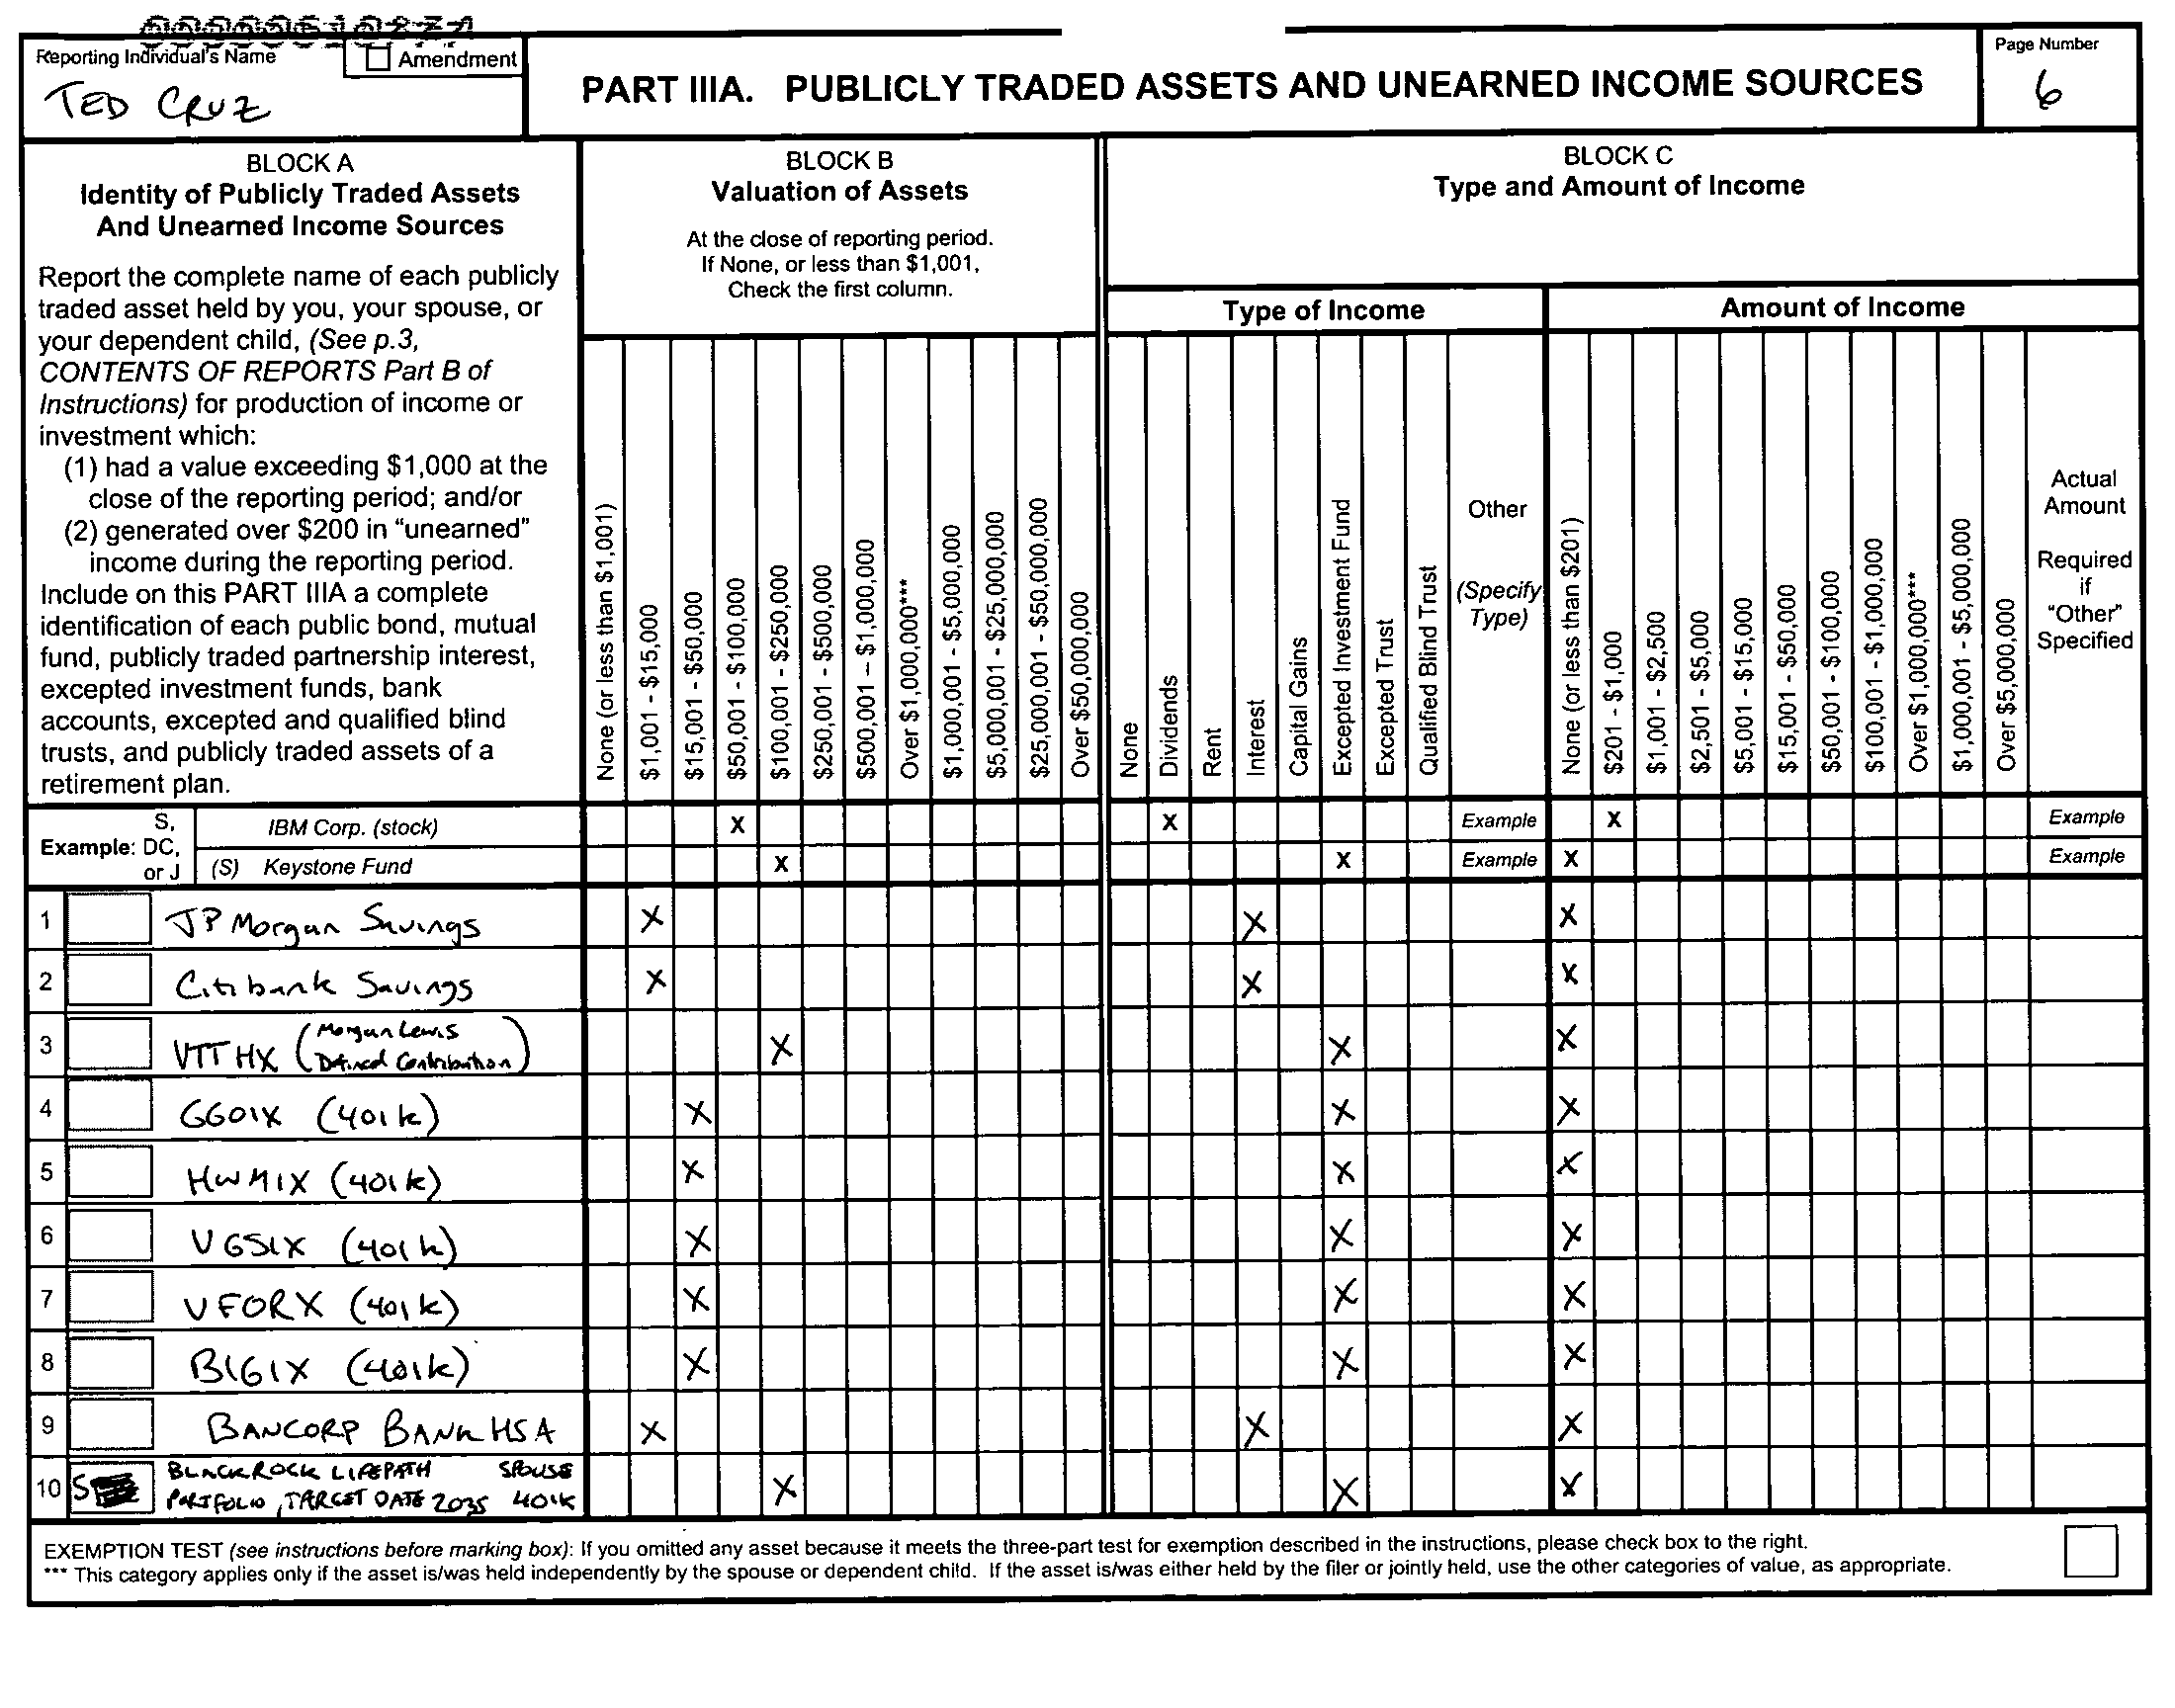 Reporting Individual's Name
Amendment
TED CRUZ
PART IIIA. PUBLICLY TRADED ASSETS AND UNEARNED INCOME SOURCES
Page Number
6
BLOCK A
Identity of Publicly Traded Assets
And Unearned Income Sources
Report the complete name of each publicly
traded asset held by you, your spouse, or
your dependent child, (See p.3,
CONTENTS OF REPORTS Part B of
Instructions) for production of income or
investment which:
(1) had a value exceeding $1,000 at the
close of the reporting period; and/or
(2) generated over $200 in “unearned”
income during the reporting period.
Include on this PART IIIA a complete
identification of each public bond, mutual
fund, publicly traded partnership interest,
excepted investment funds, bank
accounts, excepted and qualified blind
trusts, and publicly traded assets of a
retirement plan.
BLOCK B
Valuation of Assets
At the close of reporting period.
If None, or less than $1,001,
Check the first column.
None (or less than $1,001)
$1,001 - $15,000
$15,001 - $50,000
$50,001 - $100,000
$100,001 - $250,000
$250,001 - $500,000
$500,001 – $1,000,000
Over $1,000,000***
$1,000,001 - $5,000,000
$5,000,001 - $25,000,000
$25,000,001 - $50,000,000
Over $50,000,000
BLOCK C
Type and Amount of Income
Type of Income
None
Dividends
Rent
Interest
Capital Gains
Excepted Investment Fund
Excepted Trust
Qualified Blind Trust
Other
(Specify
Type)
Amount of Income
None (or less than $201)
$201 - $1,000
$1,001 - $2,500
$2,501 - $5,000
$5,001 - $15,000
$15,001 - $50,000
$50,001 - $100,000
$100,001 - $1,000,000
Over $1,000,000***
$1,000,001 - $5,000,000
Over $5,000,000
Actual
Amount
Required
if
“Other”
Specified
Example: S,
DC,
or J
IBM Corp. (stock) X X Example X Example
(S) Keystone Fund X X Example X Example
1 JP Morgan Savings X X X
2 Citibank Savings X X X
3 VTTHX (Morgan Lewis
Defined Contribution) X X X
4 GGOIX (401k) X X X
5 HWMIX (401k) X X X
6 VGSIX (401k) X X X
7 VFORX (401k) X X X
8 BIGIX (401k) X X X
9 BANCORP BANK HSA X X X
10 S BLACKROCK LIFEPATH SPOUSE
PORTFOLIO, TARGET DATE 2035 401K X X X
EXEMPTION TEST (see instructions before marking box): If you omitted any asset because it meets the three-part test for exemption described in the instructions, please check box to the right.
*** This category applies only if the asset is/was held independently by the spouse or dependent child. If the asset is/was either held by the filer or jointly held, use the other categories of value, as appropriate.